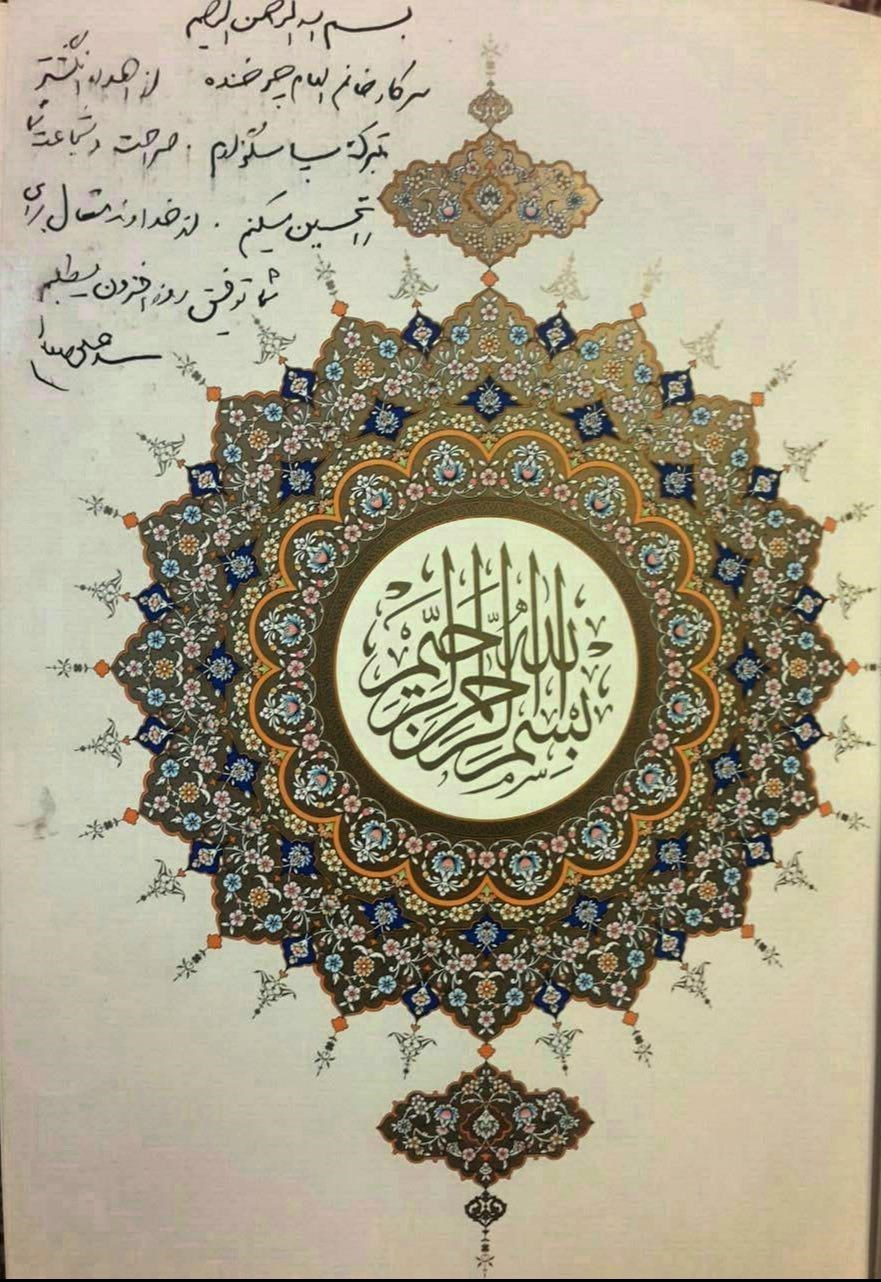 بسم الله الرحمن الرحیم
سرکار خانم الهام چرخنده از اهداء انگشتری
تبرکتان سپاسگزارم. صراحت و شجاعت شما
را تحسین میکنم. از خداوند متعال برای
شما توفیق روز افزون میطلبم
سید
بِسْمِ اللهِ الرَّحْمنِ الرَّحِيْمِ